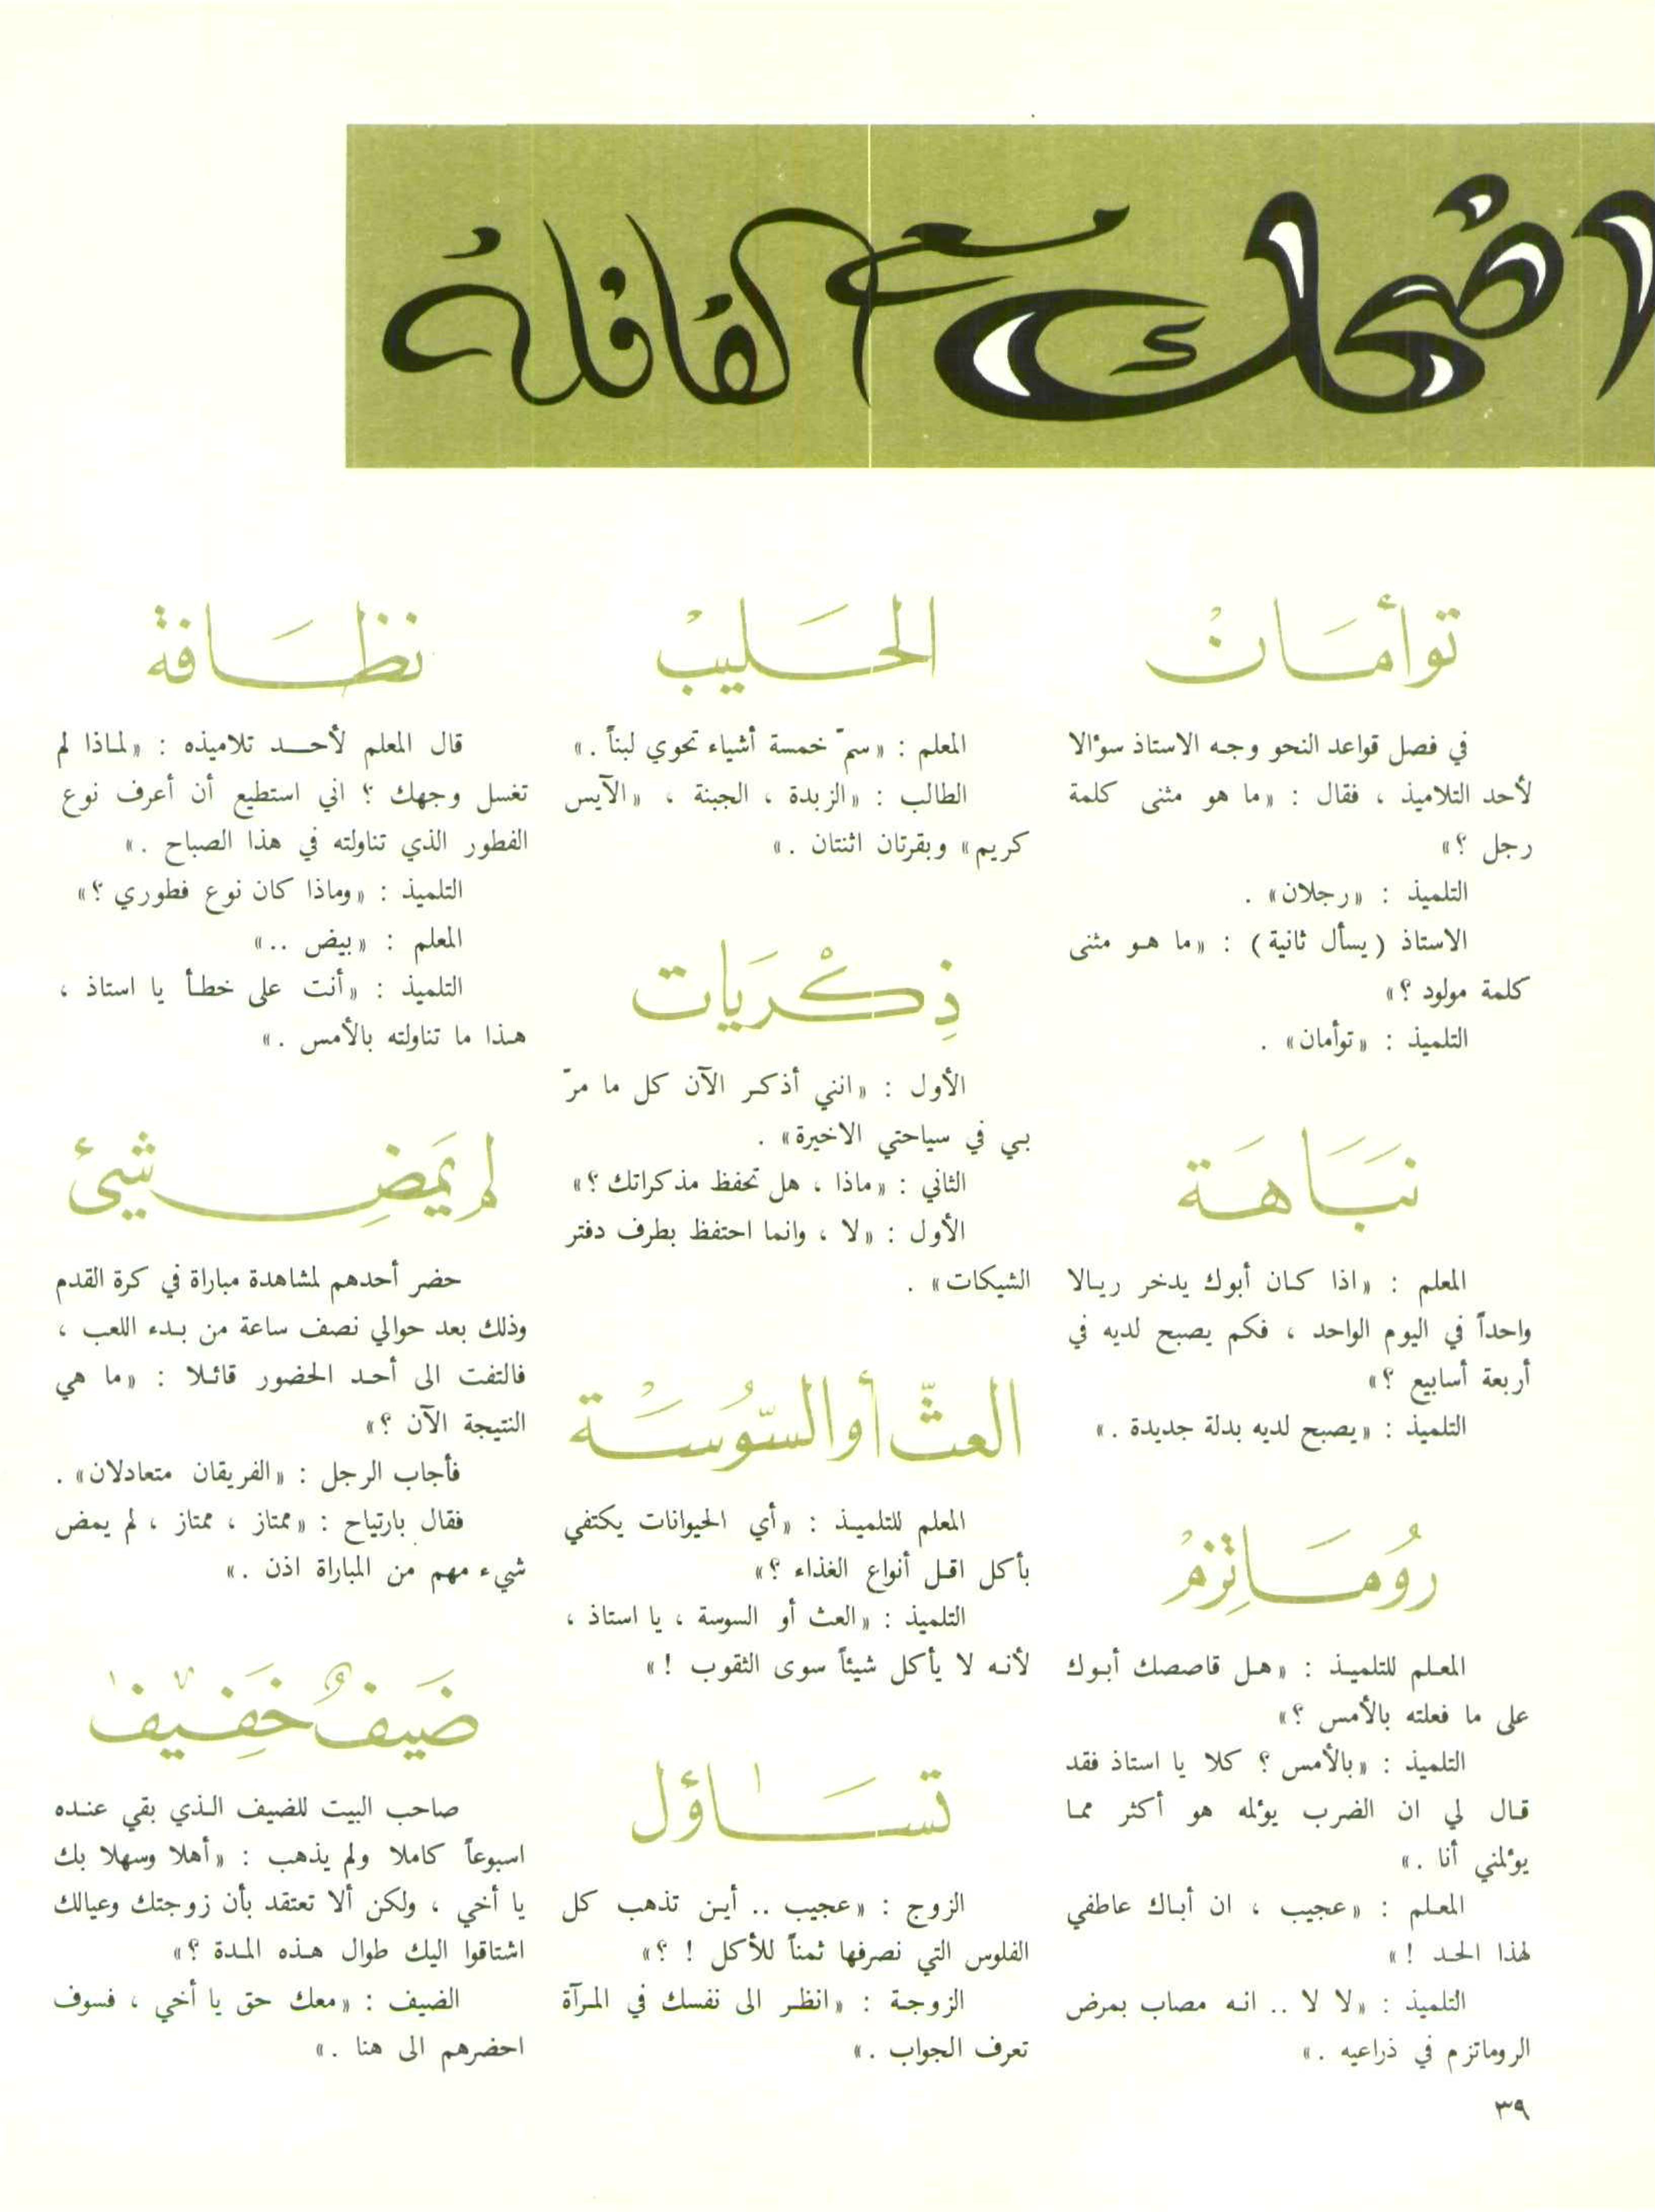 اضحك مع القافلة
توأمان
في فصل قواعد النحو وجه الاستاذ سؤالا
لأحد التلاميذ ، فقال : «ما هو مثنى كلمة
رجل ؟»
التلميذ : «رجلان» .
الاستاذ (يسأل ثانية) : «ما هو مثنى
كلمة مولود ؟»
التلميذ : «توأمان» .
نباهة
المعلم : «اذا كان أبوك يدخر ريالا
واحداً في اليوم الواحد ، فكم يصبح لديه في
أربعة أسابيع ؟»
التلميذ : «يصبح لديه بدلة جديدة .»
روماتزم
المعلم للتلميذ : «هل قاصصك أبوك
على ما فعلته بالأمس ؟»
التلميذ : «بالأمس ؟ كلا يا استاذ فقد
قال لي ان الضرب يؤلمه هو أكثر مما
يؤلمني أنا .»
المعلم : «عجيب ، ان أباك عاطفي
لهذا الحد !»
التلميذ : «لا لا .. انه مصاب بمرض
الروماتزم في ذراعيه .»
الحليب
المعلم : «سمّ خمسة أشياء تحوي لبناً .»
الطالب : «الزبدة ، الجبنة ، «الآيس
كريم» وبقرتان اثنتان .»
ذكريات
الأول : «انني أذكر الآن كل ما مرّ
بي في سياحتي الاخيرة» .
الثاني : «ماذا ، هل تحفظ مذكراتك ؟»
الأول : «لا ، وانما احتفظ بطرف دفتر
الشيكات» .
العثّ أو السّوسة
المعلم للتلميذ : «أي الحيوانات يكتفي
بأكل اقل أنواع الغذاء ؟»
التلميذ : «العث أو السوسة ، يا استاذ ،
لأنه لا يأكل شيئاً سوى الثقوب !»
تساؤل
الزوج : «عجيب .. أين تذهب كل
الفلوس التي نصرفها ثمناً للأكل ! ؟»
الزوجة : «انظر الى نفسك في المرآة
تعرف الجواب .»
نظافة
قال المعلم لأحد تلاميذه : «لماذا لم
تغسل وجهك ؟ اني استطيع أن أعرف نوع
الفطور الذي تناولته في هذا الصباح .»
التلميذ : «وماذا كان نوع فطوري ؟»
المعلم : «بيض ..»
التلميذ : «أنت على خطأ يا استاذ ،
هذا ما تناولته بالأمس .»
لم يمضِ شيئ
حضر أحدهم لمشاهدة مباراة في كرة القدم
وذلك بعد حوالي نصف ساعة من بدء اللعب ،
فالتفت الى أحد الحضور قائلا : «ما هي
النتيجة الآن ؟»
فأجاب الرجل : «الفريقان متعادلان» .
فقال بارتياح : «ممتاز ، ممتاز ، لم يمض
شيء مهم من المباراة اذن .»
ضيفٌ خفيف
صاحب البيت للضيف الذي بقي عنده
اسبوعاً كاملا ولم يذهب : «أهلا وسهلا بك
يا أخي ، ولكن ألا تعتقد بأن زوجتك وعيالك
اشتاقوا اليك طوال هذه المدة ؟»
الضيف : «معك حق يا أخي ، فسوف
احضرهم الى هنا .»
٣٩